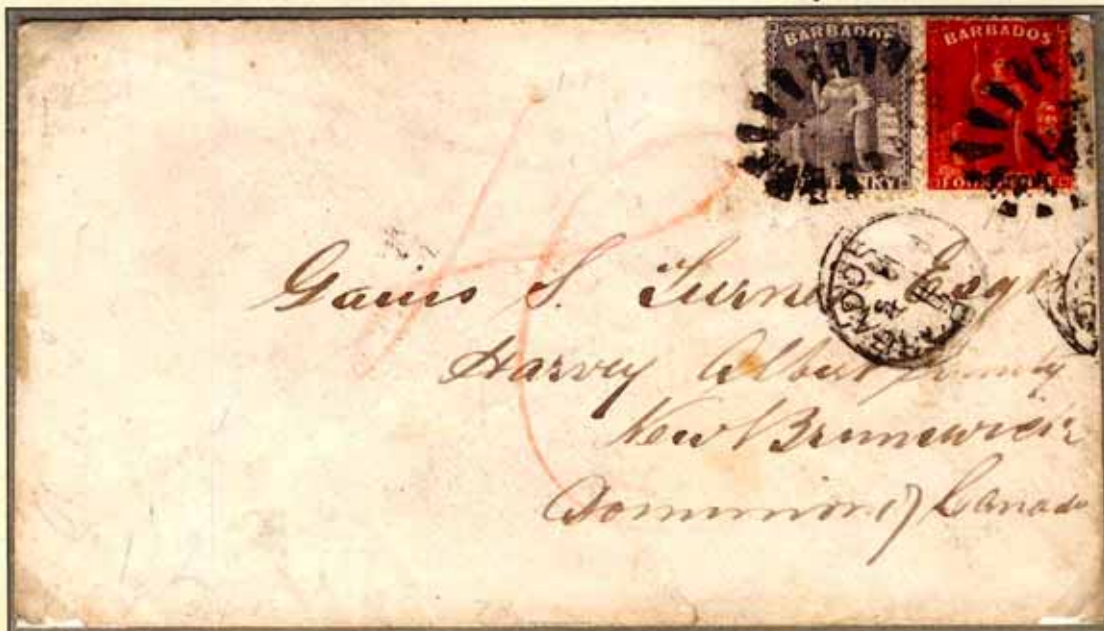 BARBADOS BARBADOS
Gaius S. Turner Esqr
Harvey Albert County
New Brunswick
Dominion of Canada
BARBADOS